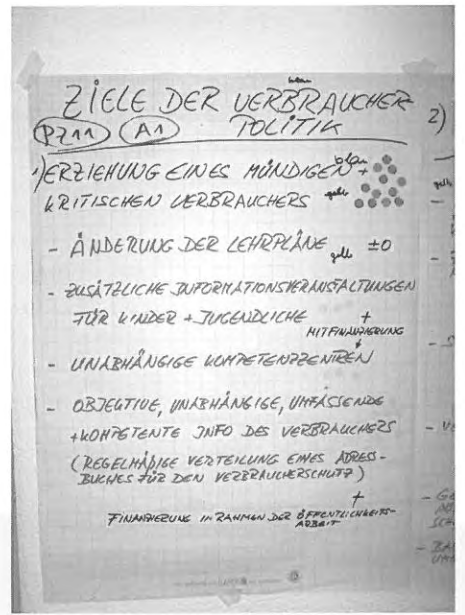 blau
ZIELE DER VERBRAUCHER
POLITIK
PZ11 A1
2)
1) ERZIEHUNG EINES MÜNDIGEN + blau
KRITISCHEN VERBRAUCHERS gelb
gelb
- ÄNDERUNG DER LEHRPLÄNE gelb ±0
- ZUSÄTZLICHE INFORMATIONSVERANSTALTUNGEN
FÜR KINDER + JUGENDLICHE +
MITFINANZIERUNG
- UNABHÄNGIGE KOMPETENZZENTREN
- OBJEKTIVE, UNABHÄNGIGE, UMFASSENDE
+ KOMPETENTE INFO DES VERBRAUCHERS
(REGELMÄßIGE VERTEILUNG EINES ADRESS-
BUCHES FÜR DEN VERBRAUCHERSCHUTZ)
+
FINANZIERUNG IM RAHMEN DER ÖFFENTLICHKEITS-
ARBEIT